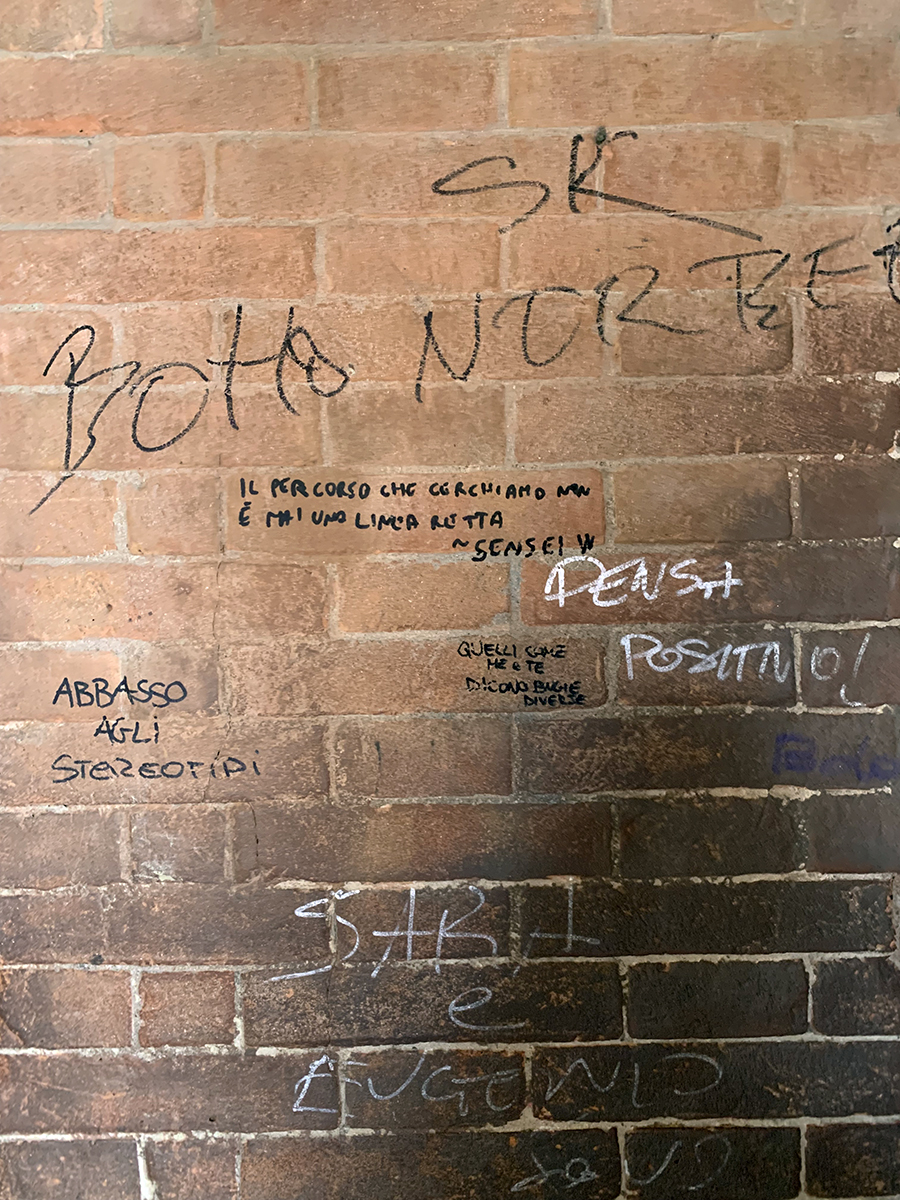 SR
BOHO NORBE
IL PERCORSO CHE CERCHIAMO NON
È MAI UNA LINEA RETTA
~ SENSEI W
PENSA
POSITIVO!
QUELLI COME
ME E TE
DICONO BUGIE
DIVERSE
ABBASSO
AGLI
STEREOTIPI
SARA
e
EUGENIO